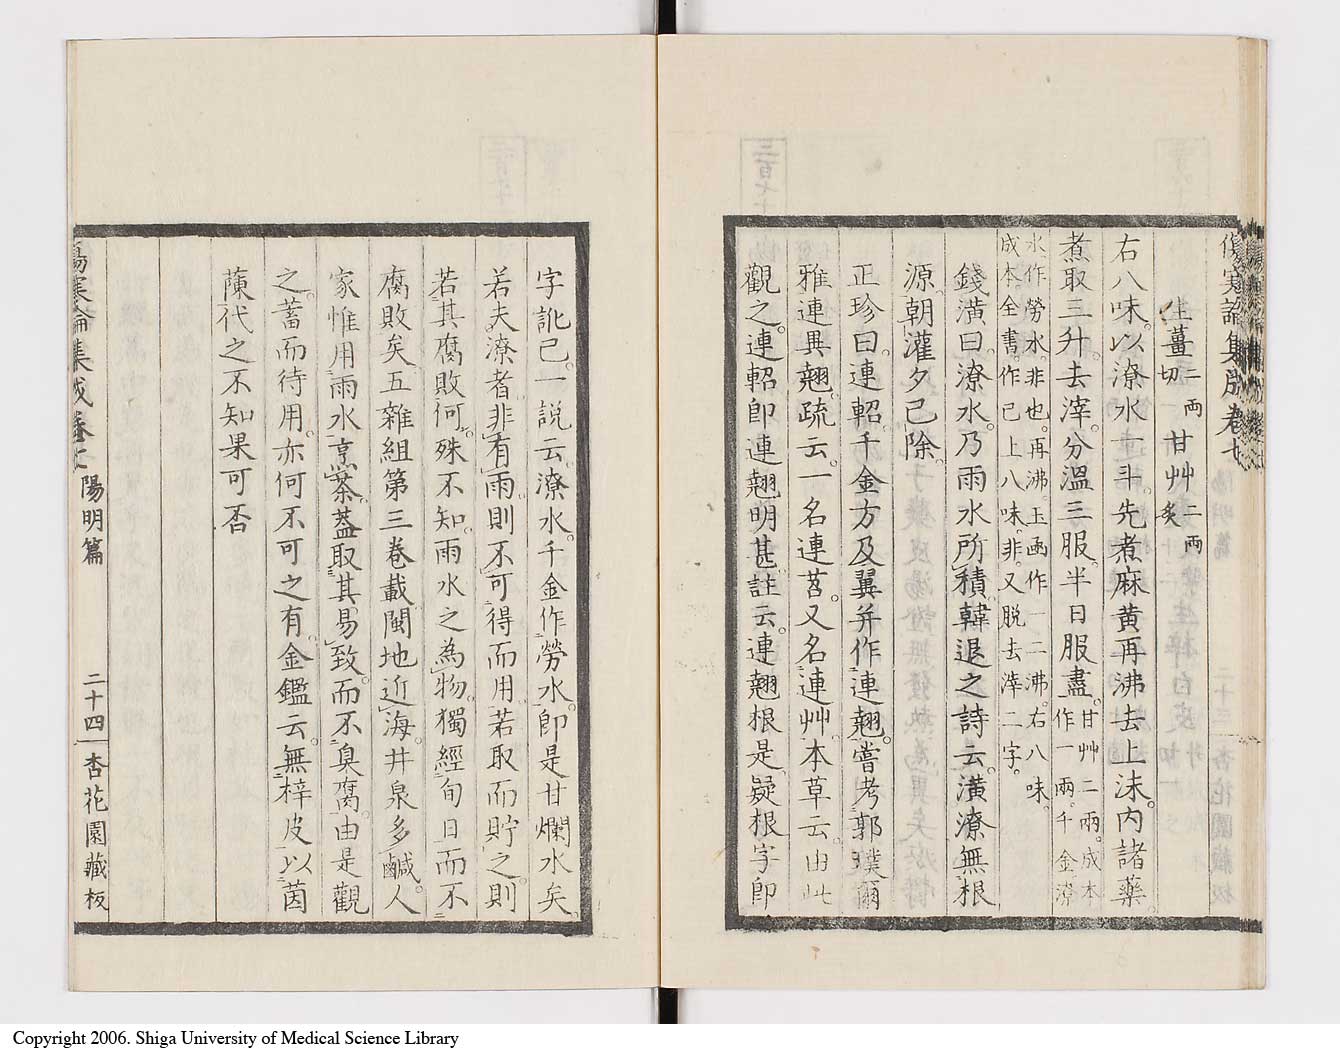 傷寒論集成卷七
生薑二兩切 甘艸二兩炙
右八味以潦水一斗先煮麻黃再沸去上沫內諸藥
煮取三升去滓分溫三服半日服盡甘艸二兩成本作一兩千金潦
水作勞水非也再沸玉函作一二沸右八味
成本全書作已上八味非又脱去滓二字
錢潢曰潦水乃雨水所積韓退之詩云潢潦無根
源朝灌夕已除
正珍曰連軺千金方及翼并作連翹嘗考郭璞爾
雅連異翹疏云一名連苕又名連艸本草云由此
觀之連軺即連翹明甚註云連翹根是疑根字即
字訛已一說云潦水千金作勞水即是甘爛水矣
若夫潦者非有雨則不可得而用若取而貯之則
若其腐敗何殊不知雨水之為物獨經旬日而不
腐敗矣五雜組第三卷載閩地近海井泉多鹹人
家惟用雨水烹茶蓋取其易致而不臭腐由是觀
之蓄而待用亦何不可之有金鑑云無梓皮以茵
蔯代之不知果可否
傷寒論集成卷七 陽明篇 二十四 杏花園藏板
Copyright 2006. Shiga University of Medical Science Library